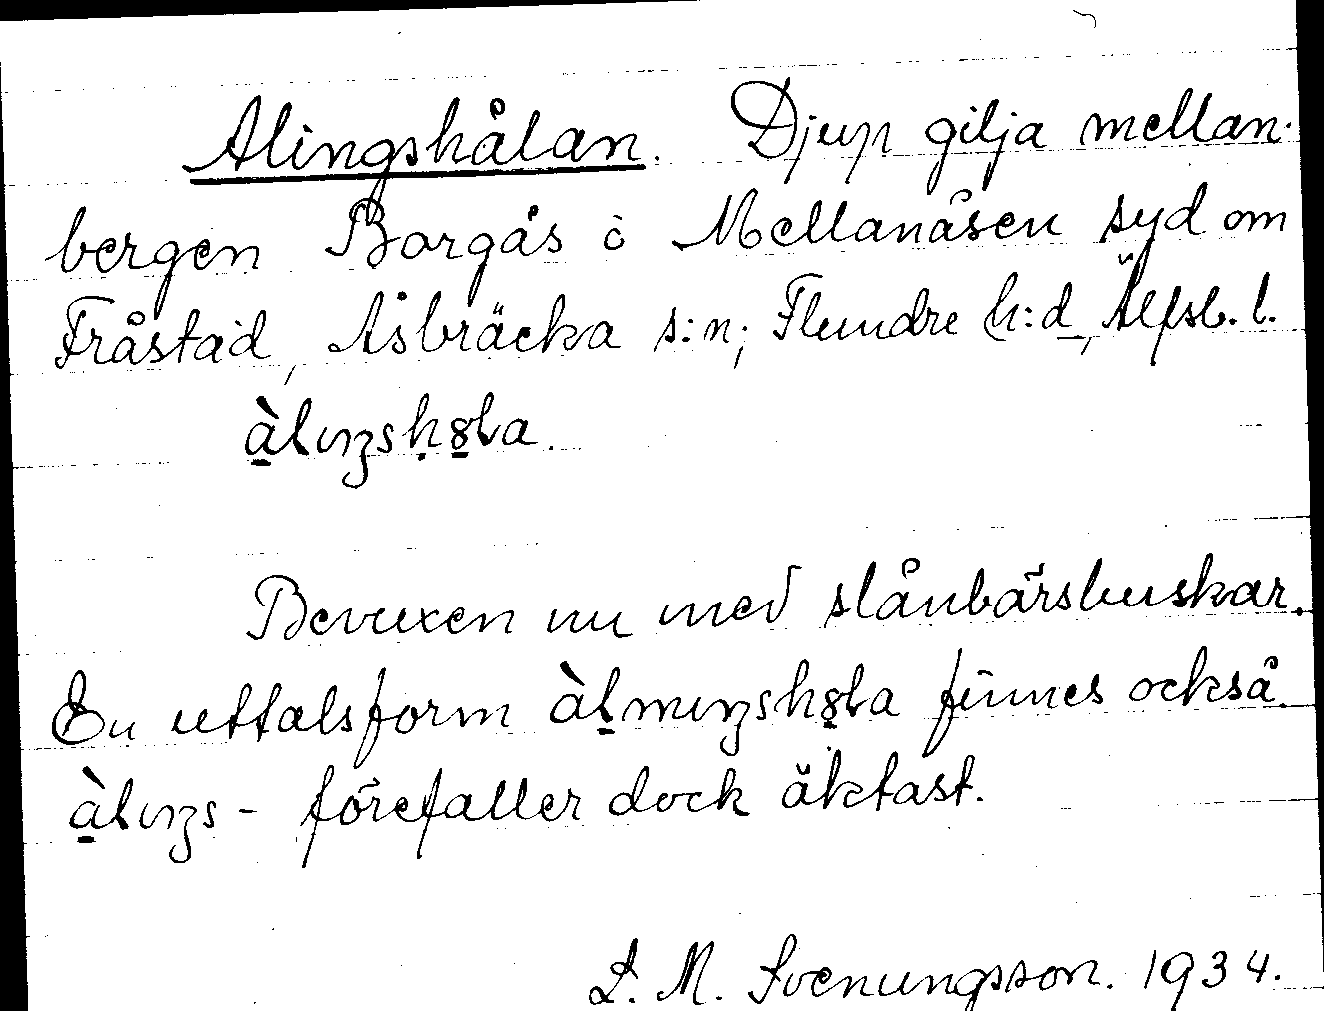 Alingshålan. Djup gilja mellan
bergen Borgås o Mellanåsen syd om
Fråstad, Åsbräcka s:n; Flundre h:d, Älfsb. l.
Bevuxen nu med slånbärsbuskar.
En uttalsform finnes också.
- förefaller dock äktast.
L. M. Svenungsson. 1934.